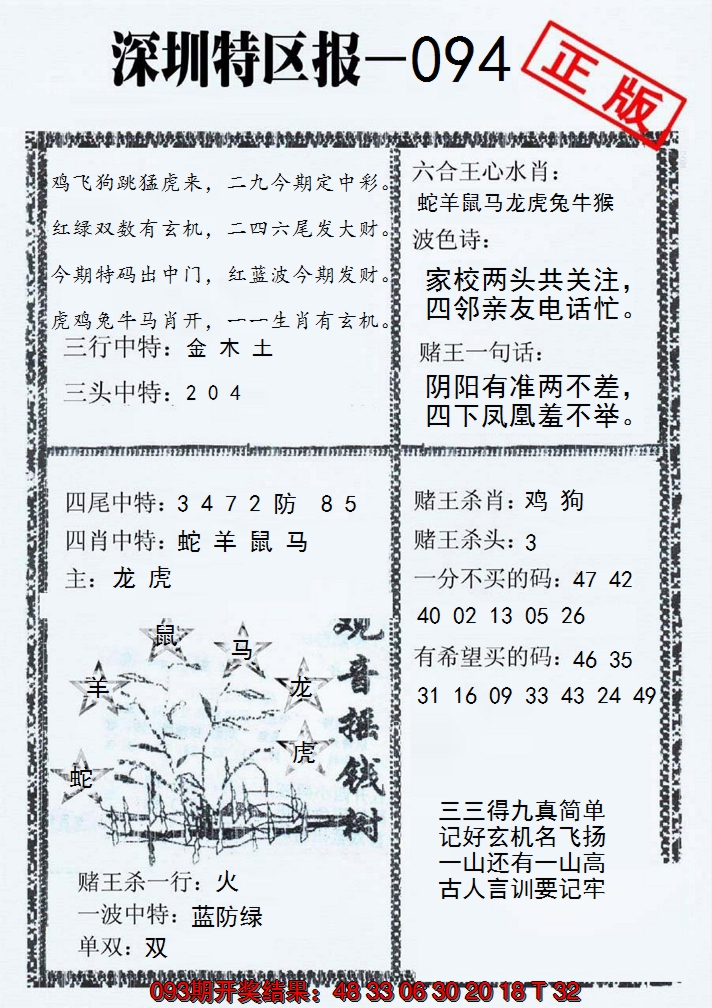 深圳特区报—094
正版
鸡飞狗跳猛虎来，二九今期定中彩。
红绿双数有玄机，二四六尾发大财。
今期特码出中门，红蓝波今期发财。
虎鸡兔牛马肖开，一一生肖有玄机。
三行中特：金 木 土
三头中特：2 0 4
六合王心水肖：
蛇羊鼠马龙虎兔牛猴
波色诗：
家校两头共关注，
四邻亲友电话忙。
赌王一句话：
阴阳有准两不差，
四下凤凰羞不举。
四尾中特：3 4 7 2 防 8 5
四肖中特：蛇 羊 鼠 马
主：龙 虎
鼠
马
羊
龙
虎
蛇
观音摇钱树
赌王杀一行：火
一波中特：蓝防绿
单双：双
赌王杀肖：鸡 狗
赌王杀头：3
一分不买的码：47 42
40 02 13 05 26
有希望买的码：46 35
31 16 09 33 43 24 49
三三得九真简单
记好玄机名飞扬
一山还有一山高
古人言训要记牢
093期开奖结果：48 33 06 30 20 18 T 32